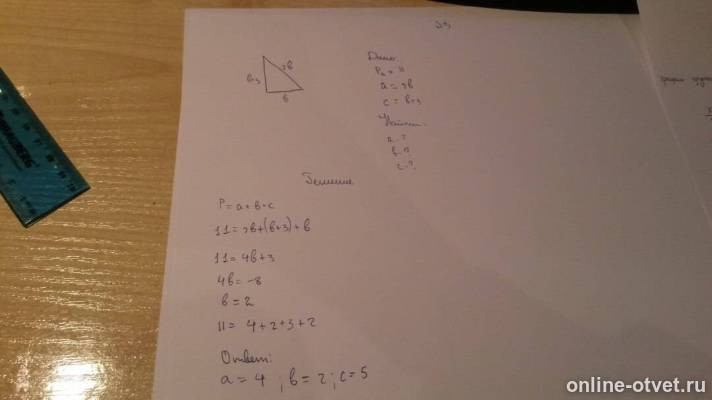 в+3
2в
в
Дано:
P = 11
a = 2в
c = в+3
Найти:
a-?
в-?
c-?
Решение
P = a + в + c
11 = 2в+(в+3)+в
11 = 4в+3
4в = -8
в = 2
11 = 4+2+3+2
Ответ:
a = 4 ; в = 2 ; c = 5
online-otvet.ru